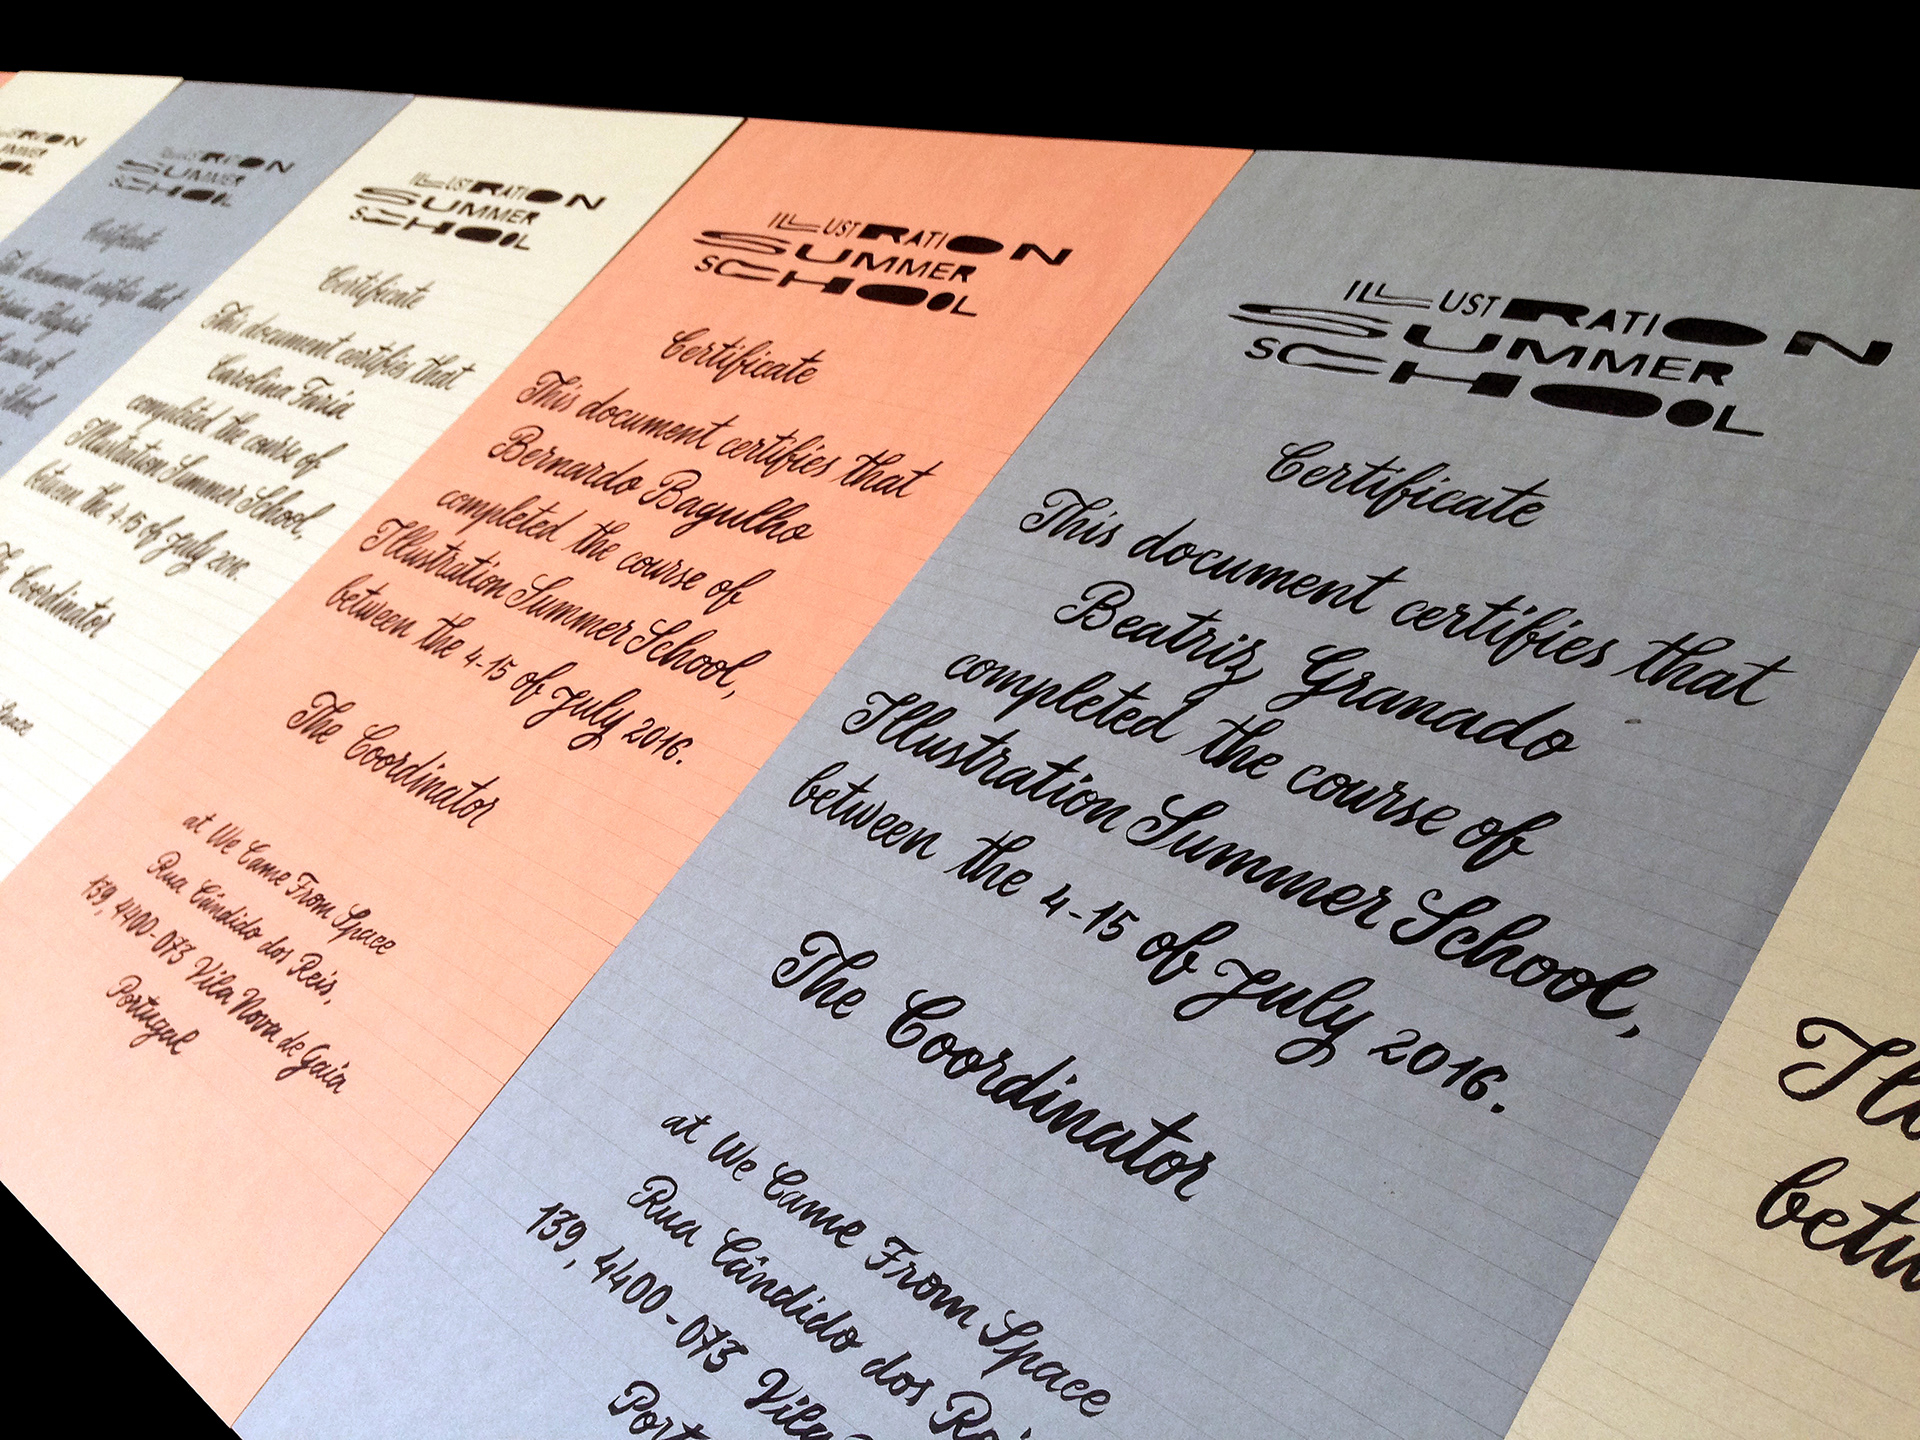 ILLUSTRATION
SUMMER
SCHOOL
Certificate
This document certifies that
ILLUSTRATION
SUMMER
SCHOOL
Certificate
This document certifies that
Carolina Turia
completed the course of
Illustration Summer School,
between the 4-15 of July 2016.
The Coordinator
Space
ILLUSTRATION
SUMMER
SCHOOL
Certificate
This document certifies that
Bernardo Bagulho
completed the course of
Illustration Summer School,
between the 4-15 of July 2016.
The Coordinator
at We Came From Space
Rua Cândido dos Reis,
139, 4400-073 Vila Nova de Gaia
Portugal
ILLUSTRATION
SUMMER
SCHOOL
Certificate
This document certifies that
Beatriz Granado
completed the course of
Illustration Summer School,
between the 4-15 of July 2016.
The Coordinator
at We Came From Space
Rua Cândido dos Rei
139, 4400-073 Vila
Port
Illu
betw